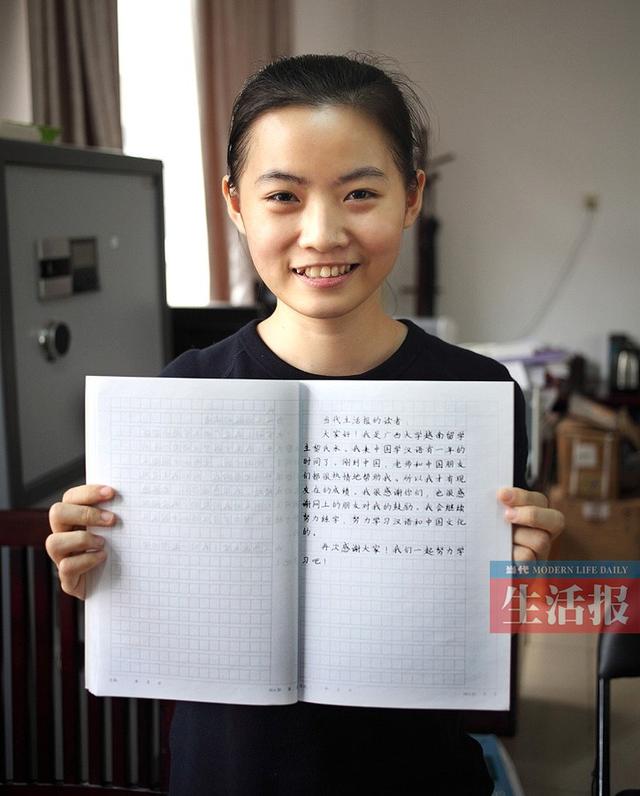 当代生活报的读者
大家好！我是广西大学越南留学
生黎氏禾，我来中国学汉语有一年的
时间了，刚到中国，老师和中国朋友
们都很热情地帮助我。所以我才有现
在的成绩，我很感谢你们，也很感
谢网上的朋友对我的鼓励。我会继续
努力练字，努力学习汉语和中国文化
的。
再次感谢大家！我们一起努力学
习吧！
当代 MODERN LIFE DAILY
生活报